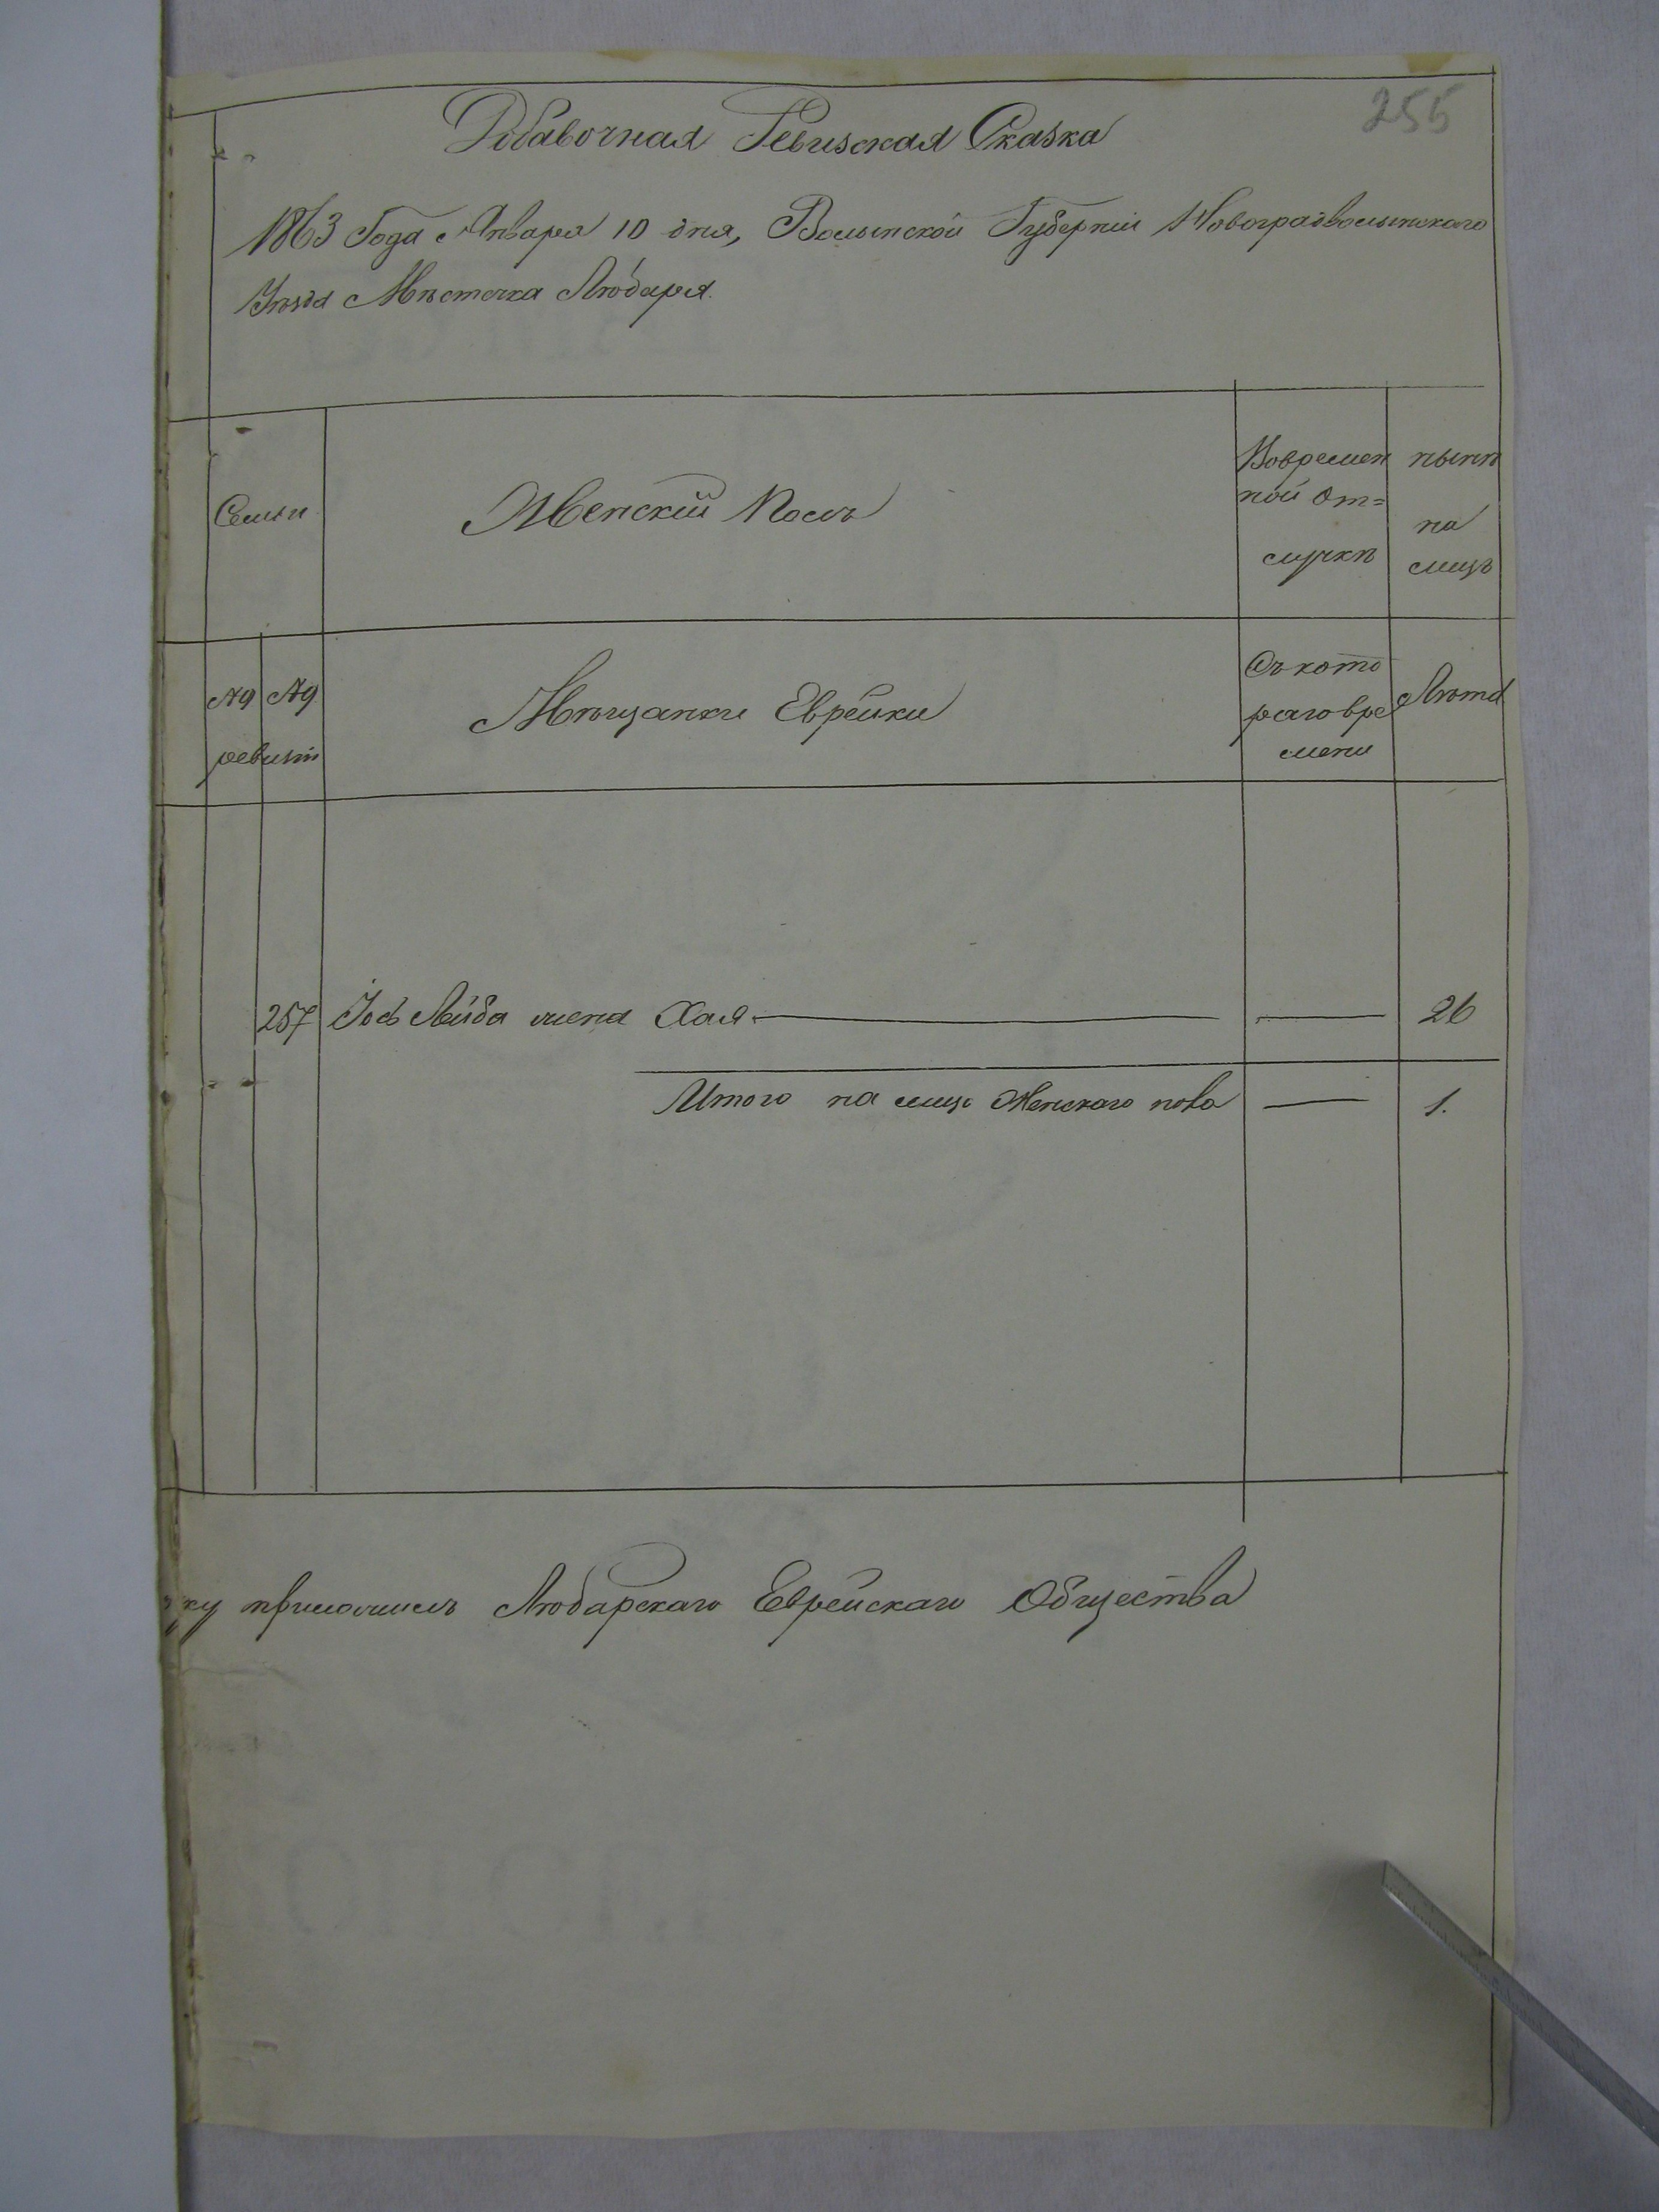 255
Добавочная Ревизская Сказка
1863 Года Января 10 дня, Волынской Губернии Новоградволынского
Уѣзда Мѣстечка Любаря.
Семьи
Женскій Полъ
Вовремен
ной от=
лучкѣ
нынѣ
на
лицѣ
№ №
ревизіи
Мѣщанки Еврейки
Съ кото
раго вре
мени
Лѣта
257 Іось Лейба жена Хая 26
Итого на лицо Женскаго пола 1.
ку приложилъ Любарскаго Еврейскаго Общества